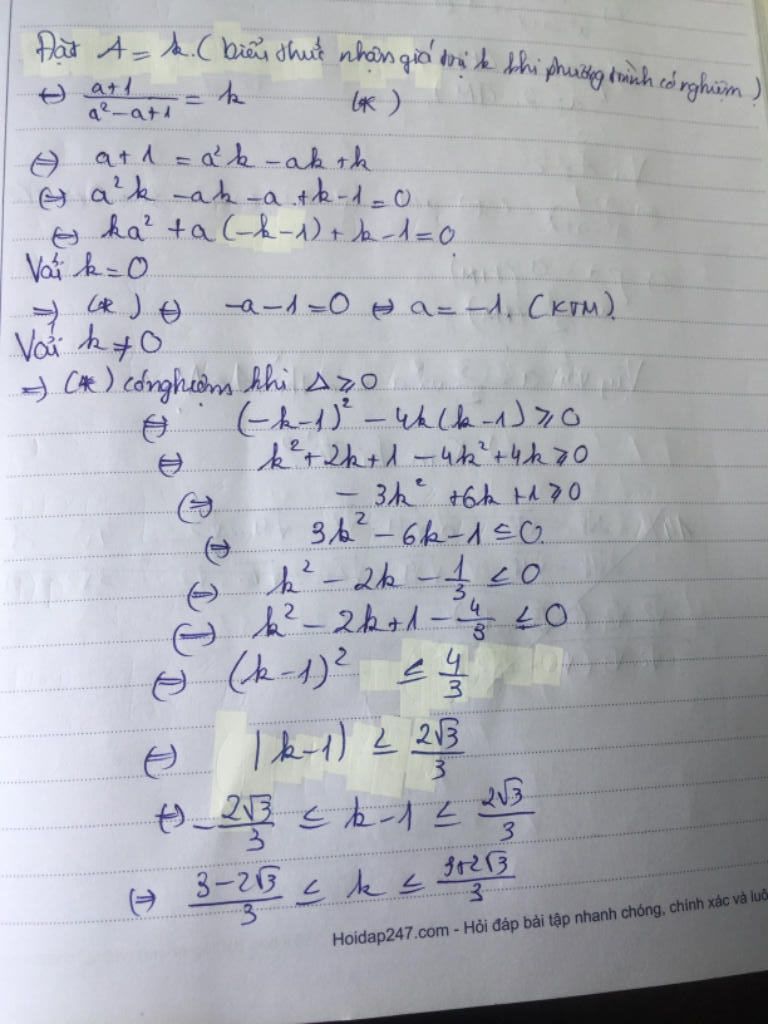 Đặt A = k. (biểu thức nhận giá trị k khi phương trình có nghiệm)
⇔ a+1 / a²-a+1 = k (*)
⇔ a+1 = a²k - ak + k
⇔ a²k - ak - a + k - 1 = 0
⇔ ka² + a(-k-1) + k - 1 = 0
Với k = 0
⇒ (*) ⇔ -a-1 = 0 ⇔ a = -1. (KTM)
Với k ≠ 0
⇒ (*) có nghiệm khi Δ ≥ 0
⇔ (-k-1)² - 4k(k-1) ≥ 0
⇔ k² + 2k + 1 - 4k² + 4k ≥ 0
⇔ - 3k² + 6k + 1 ≥ 0
⇔ 3k² - 6k - 1 ≤ 0.
⇔ k² - 2k - 1/3 ≤ 0
⇔ k² - 2k + 1 - 4/3 ≤ 0
⇔ (k-1)² ≤ 4/3
⇔ |k-1| ≤ 2√3/3
⇔ -2√3/3 ≤ k-1 ≤ 2√3/3
⇔ 3-2√3/3 ≤ k ≤ 3+2√3/3
Hoidap247.com - Hỏi đáp bài tập nhanh chóng, chính xác và luô